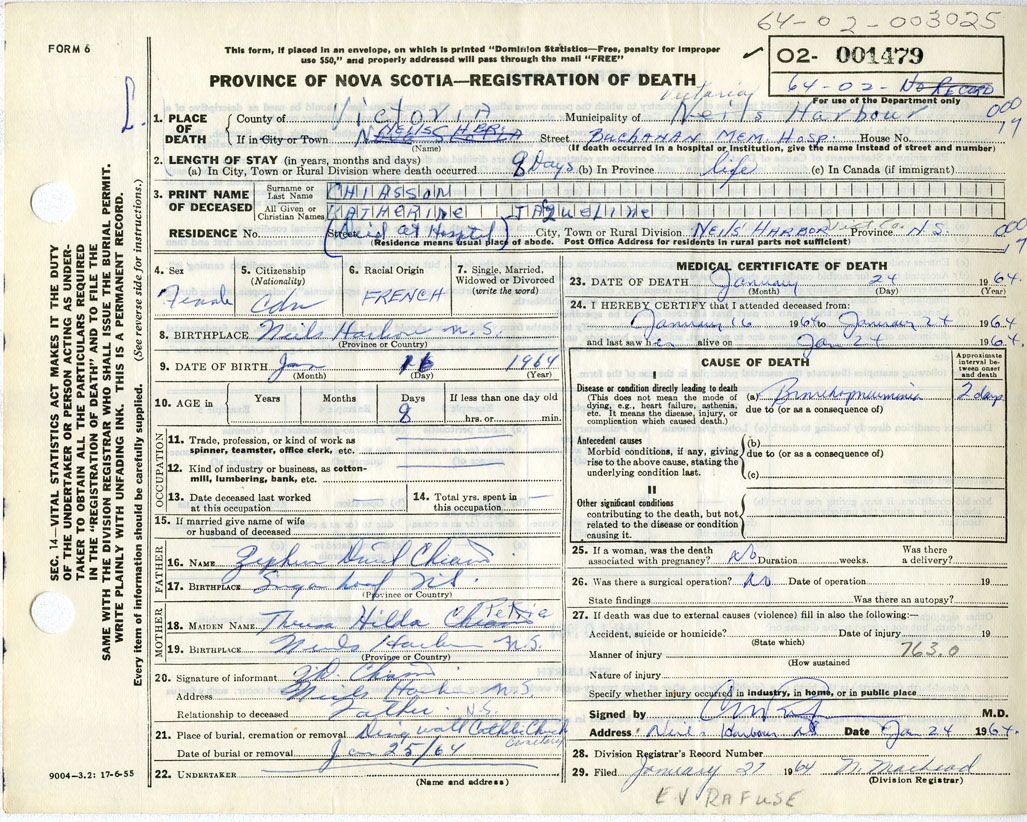 64-02-003025
FORM 6
This form, if placed in an envelope, on which is printed "Dominion Statistics—Free, penalty for improper
use $50," and properly addressed will pass through the mail "FREE"
✓ 02- 001479
64-02- No RECORD
For use of the Department only
PROVINCE OF NOVA SCOTIA—REGISTRATION OF DEATH
Victoria
1. PLACE OF DEATH
County of Victoria Municipality of Neils Harbour
000
If in City or Town Street Buchanan Mem. Hosp. House No.
19
(Name) (If death occurred in a hospital or institution, give the name instead of street and number)
2. LENGTH OF STAY (in years, months and days)
(a) In City, Town or Rural Division where death occurred 8 Days (b) In Province life (c) In Canada (if immigrant)
3. PRINT NAME OF DECEASED
Surname or Last Name CHIASSON
All Given or Christian Names KATHERINE JAQUELINE
RESIDENCE No. Street (Died at Hospital) City, Town or Rural Division NEILS HARBOR Vict Co. Province N.S.
000
17
(Residence means usual place of abode. Post Office Address for residents in rural parts not sufficient)
4. Sex Female
5. Citizenship (Nationality) Cdn
6. Racial Origin FRENCH
7. Single, Married, Widowed or Divorced (write the word)
8. BIRTHPLACE Neils Harbour N.S.
(Province or Country)
9. DATE OF BIRTH Jan 16 1964
(Month) (Day) (Year)
10. AGE in Years Months Days 8 If less than one day old hrs. or min.
OCCUPATION
11. Trade, profession, or kind of work as
spinner, teamster, office clerk, etc.
12. Kind of industry or business, as cotton-
mill, lumbering, bank, etc.
13. Date deceased last worked
at this occupation
14. Total yrs. spent in
this occupation
15. If married give name of wife
or husband of deceased
FATHER
16. NAME Chiasson
17. BIRTHPLACE Sugar Loaf N.S.
(Province or Country)
MOTHER
18. MAIDEN NAME Theresa Hilda Petrie
19. BIRTHPLACE Neils Harbour N.S.
(Province or Country)
20. Signature of informant Z.D. Chiasson
Address Neils Harbour N.S.
Relationship to deceased Father N.S.
21. Place of burial, cremation or removal Dingwall Catholic Church
Cemetery
Date of burial or removal Jan 25/64
22. UNDERTAKER
(Name and address)
MEDICAL CERTIFICATE OF DEATH
23. DATE OF DEATH January 24 1964
(Month) (Day) (Year)
24. I HEREBY CERTIFY that I attended deceased from:
January 16 1964 to January 24 1964
and last saw her alive on Jan 24 1964.
CAUSE OF DEATH
Approximate interval between onset and death
I
Disease or condition directly leading to death
(This does not mean the mode of
dying, e.g., heart failure, asthenia,
etc. It means the disease, injury, or
complication which caused death.)
(a) Bronchopneumonia 2 days
due to (or as a consequence of)
Antecedent causes
Morbid conditions, if any, giving
rise to the above cause, stating the
underlying condition last.
(b)
due to (or as a consequence of)
(c)
II
Other significant conditions
contributing to the death, but not
related to the disease or condition
causing it.
25. If a woman, was the death
associated with pregnancy? No Duration weeks. Was there
a delivery?
26. Was there a surgical operation? No Date of operation 19
State findings Was there an autopsy?
27. If death was due to external causes (violence) fill in also the following:—
Accident, suicide or homicide? Date of injury 19
(State which)
Manner of injury 763.0
(How sustained
Nature of injury
Specify whether injury occurred in industry, in home, or in public place
Signed by M.D.
Address Neil's Harbour NS Date Jan 24 1964.
28. Division Registrar's Record Number
29. Filed January 27 1964 N. MacLeod
(Division Registrar)
E V RAFUSE
9004—3.2: 17-6-55
SEC. 14—VITAL STATISTICS ACT MAKES IT THE DUTY
OF THE UNDERTAKER OR PERSON ACTING AS UNDER-
TAKER TO OBTAIN ALL THE PARTICULARS REQUIRED
IN THE "REGISTRATION OF DEATH" AND TO FILE THE
SAME WITH THE DIVISION REGISTRAR WHO SHALL ISSUE THE BURIAL PERMIT.
WRITE PLAINLY WITH UNFADING INK. THIS IS A PERMANENT RECORD.
Every item of information should be carefully supplied. (See reverse side for instructions.)